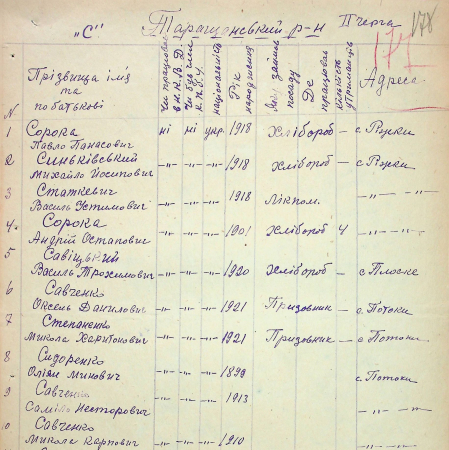 "С" Таращанський р-н II черга 178
N Прізвища ім'я та по батькові Чи працював в Н.К.В.Д. Чи був член к.п.б.у. національність Рік народження Яку займав посаду Де працював кількість утриманців Адреса
1 Сорока
Павло Панасович ні ні укр. 1918 Хлібороб – с Рǔжки
2 Синьківський
Михайло Йосипович –"– –"– –"– 1918 Хлібороб – с
3 Статкевич
Василь Устимович –"– –"– –"– 1918 Лікпом. –"– –"–
4. Сорока
Андрій Остапович –"– –"– –"– 1901 Хлібороб 4 –"– –"–
5 Савіцький
Василь Трохимович –"– –"– –"– 1920 Хлібороб – с Плоске
6 Савченко
Оксень Данилович –"– –"– –"– 1921 Призовник – с. Потоки
7 Степаненко
Микола Харитонович –"– –"– –"– 1921 Призовник – с. Потоки
8 Сидоренко
Оліян Минович –"– –"– –"– 1899 с. Потоки
9 Савченко
Саміло Несторович –"– –"– –"– 1913 –"– –"–
0 Савченко
Микола Карпович –"– –"– –"– 1910 –"– –"–